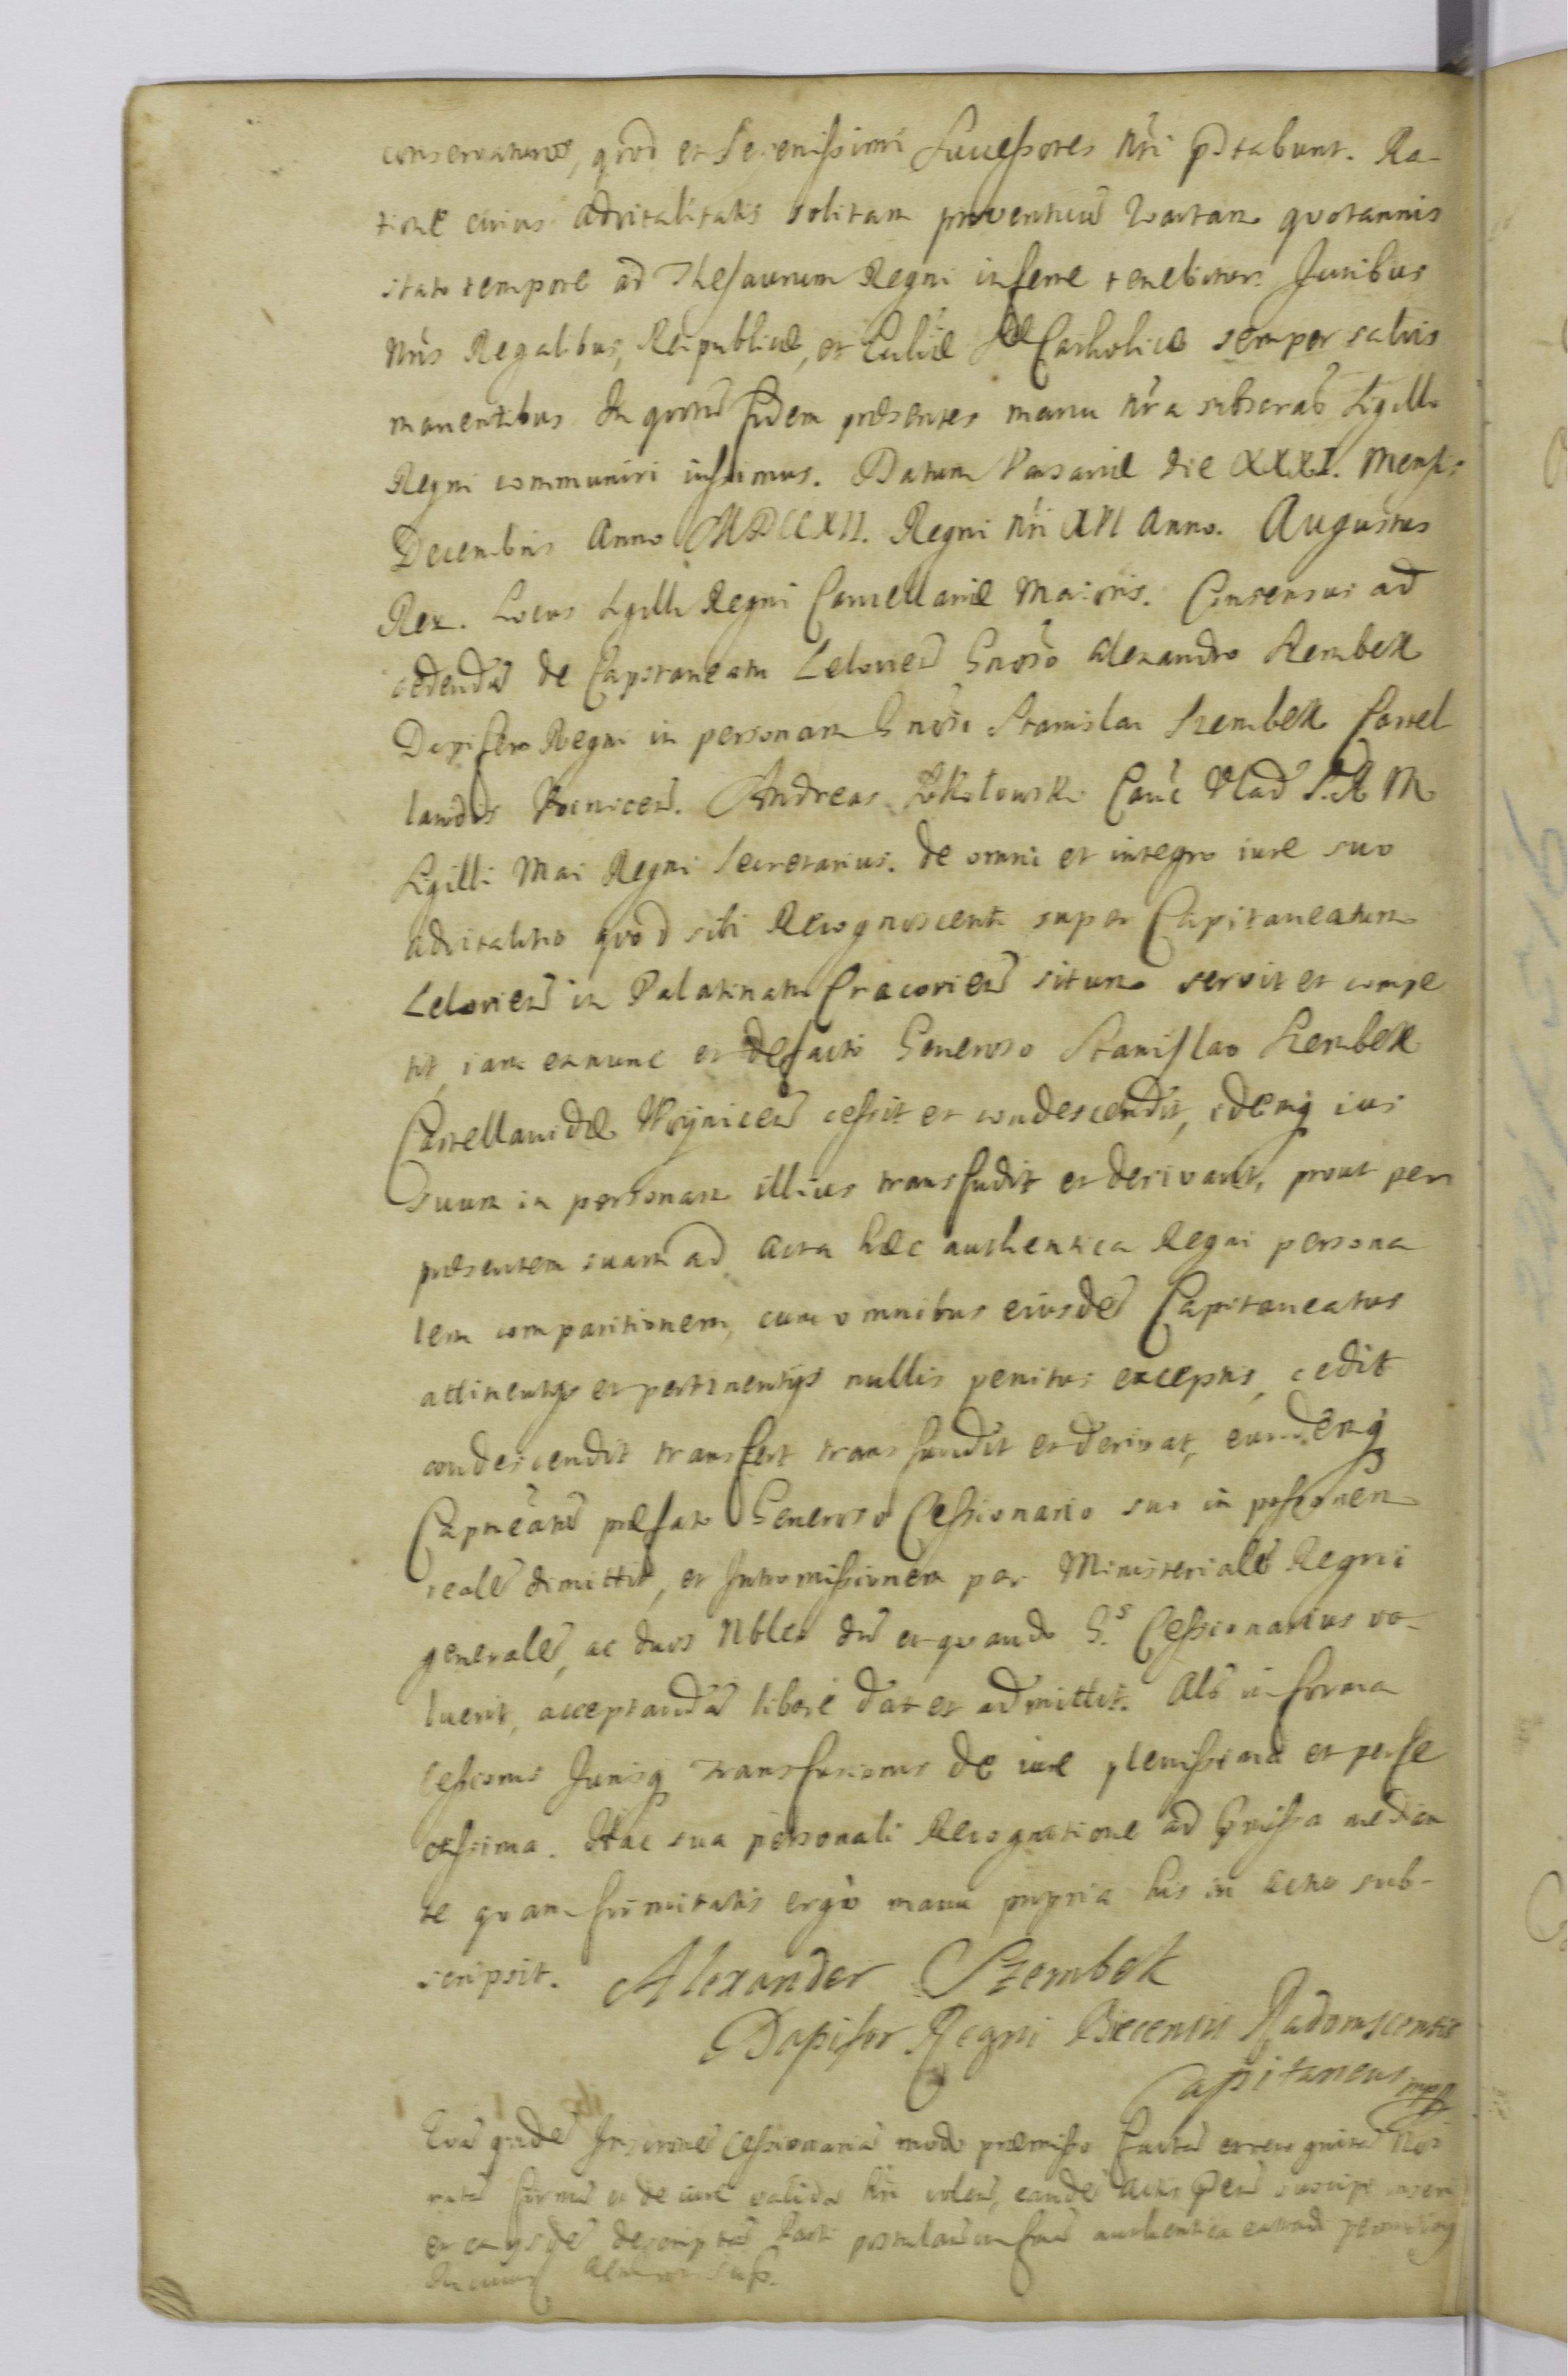 conservaturos, qvod et Serenissimi Successores nri pstabunt. Ra-
tione cuius advitalitatis solitam proventuũ Qvartam qvotannis
stato tempore ad Thesaurum Regni inferre tenebitur. Juribus
nris Regalibus, Reipublicæ, et Ecclæ Catholicæ semper salvis
manentibus. In qvorũ fidem præsentes manu nra subscrãs Sigillo
Regni communiri iussimus. Datum Varsaviæ die XXXI. Mensis
Decembris Anno MDCCXII. Regni nri XVI Anno. Augustus
Rex. Locus Sigilli Regni Cancellariæ Maioris. Consensus ad
cedendũ de Capitaneatu Lelovieñ Gnoso Alexandro Szembek
Dapifero Regni in personam Gnosi Stanislai Szembek Castel
lanidis Voiniceñ. Andreas Zokołowski Canc Vlad S.R.M.
Sigilli Mai Regni Secretarius. de omni et integro iure suo
advitalitio qvod sibi Recognoscenti super Capitaneatum
Lelovieñ in Palatinatu Cracovieñ situm servit et compe
tit, iam ex nunc et defacto Generoso Stanislao Szembek
Castellanidæ Woyniceñ cessit et condescendit, idemq ius
suum in personam illius transfudit et derivavit, prout per
præsentem suam ad Acta hæc authentica Regni persona
lem comparitionem, cum omnibus eiusdẽ Capitaneatus
attinentijs et pertinentijs nullis penitus exceptis, cedit
condescendit transfert transfundit et derivat, eundemq
Capitneatũ præfato Generoso Cessionario suo in possesionem
realẽ dimittit, et Intromissionem per Ministerialẽ Regni
generalẽ, ac duos Nbles dũ et qvando G.s Cessionarius vo-
luerit, acceptandã liberè dat et admittit. Als in forma
cessionis Jurisq transfusionis de iure plenissima et perfe
ctissima. Hac sua personali Recognitione ad pmissa median
te qvam firmitatis ergò manu propria his in Actis sub-
scripsit. Alexander Szembek
Dapifer Regni Biecensis Radomscensis
Capitaneus mpp
qvidẽ Inscriptionẽ Cessionariã modo præmisso factã et recognitã
ratã firmã et de iure validã hri volens, eandẽ Actis suscipi inseri
et ex ijsdẽ descriptã Parti postulanti in formã authentica extradi permisimus